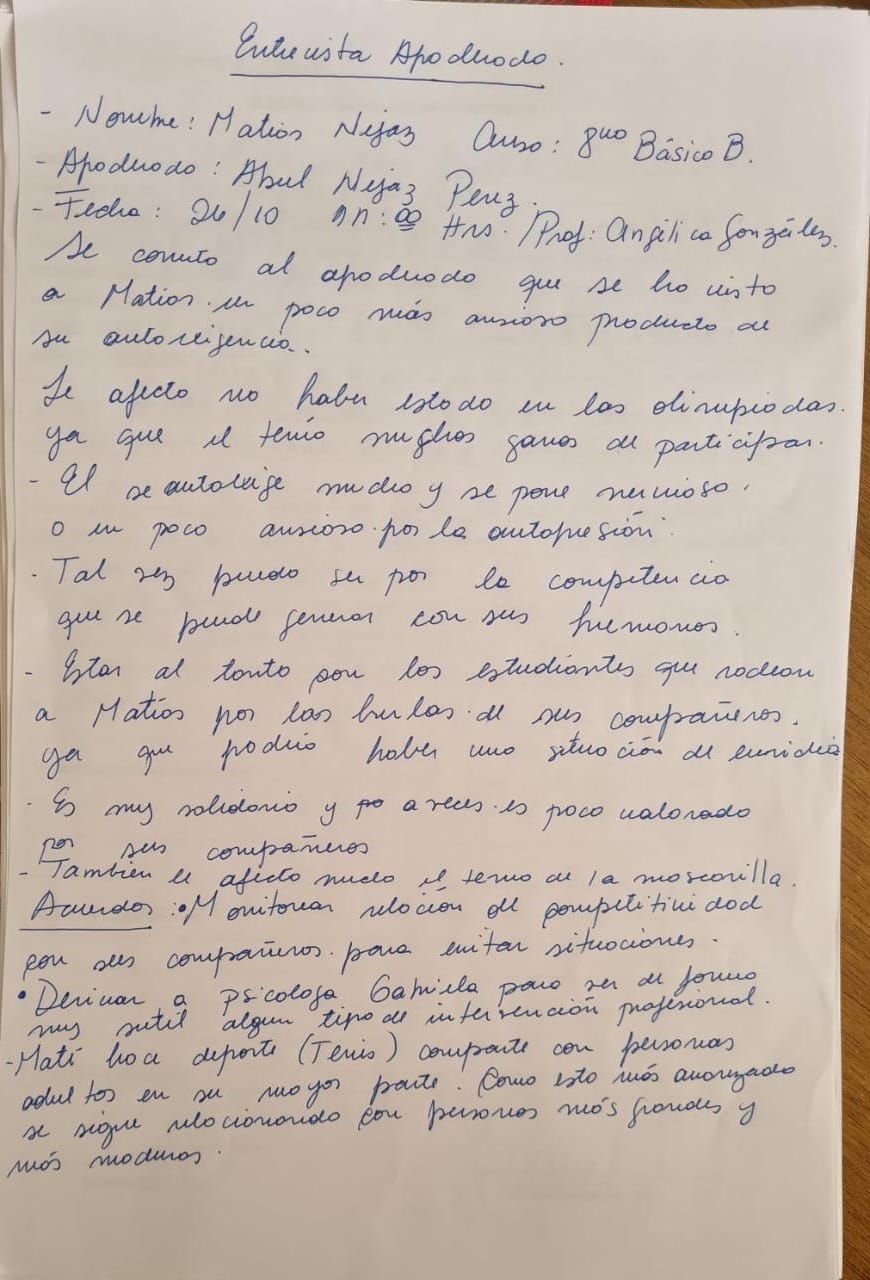 Entrevista Apoderado.
- Nombre: Matías Nijaz Curso: 8vo Básico B.
- Apoderado: Abul Nijaz Perez.
- Fecha: 26/10 11:00 Hrs. /Prof: Angélica González.
Se comento al apoderado que se ha visto
a Matias un poco más ansioso producto de
su autoexigencia.
Le afecto no haber estado en las olimpiadas.
ya que el tenía muchas ganas de participar.
- El se autoexige mucho y se pone nervioso.
o un poco ansioso por la autopresión.
- Tal vez pueda ser por la competencia
que se puede generar con sus hermanos.
- Estar al tanto con los estudiantes que rodean
a Matías por las burlas de sus compañeros.
ya que podría haber una situación de envidia
- Es muy solidario y a veces es poco valorado
por sus compañeros
- Tambien le afecto mucho el tema de la mascarilla.
Acuerdos: • Monitorear relación de competitividad
con sus compañeros para evitar situaciones.
• Derivar a Psicologa Gabriela para ver de forma
muy sutil algun tipo de intervención profesional.
- Mati hace deporte (Tenis) comparte con personas
adultos en su mayor parte. Como esta más avanzado
se sigue relacionando con personas más grandes y
más maduras.